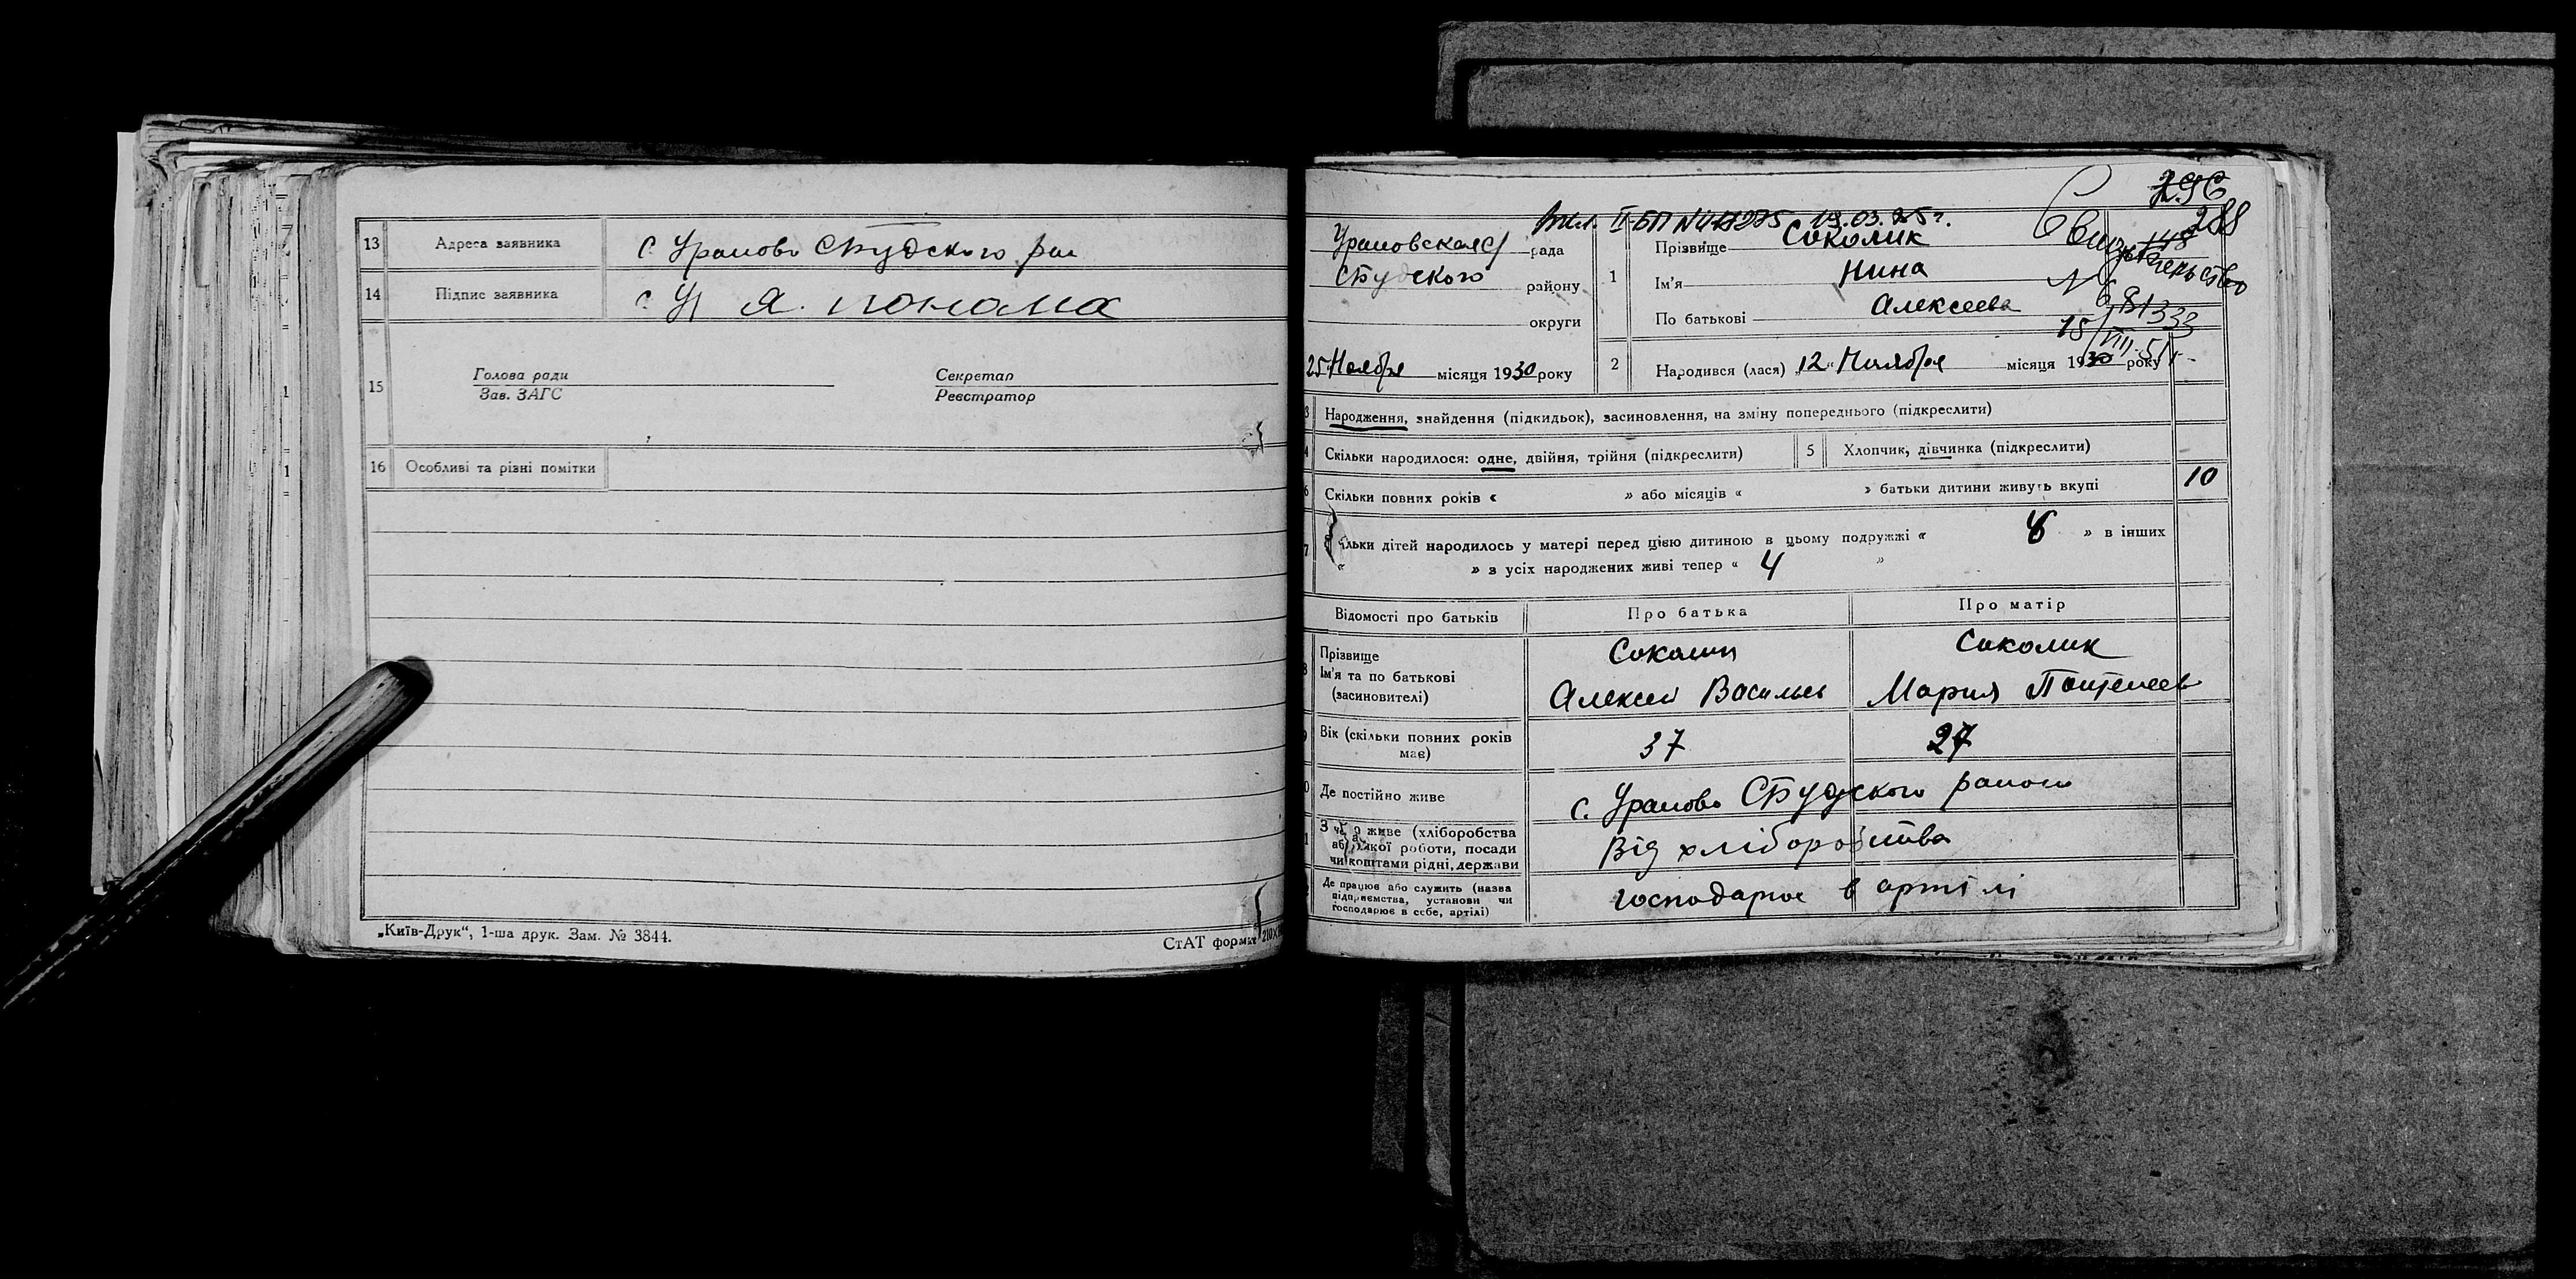 13 Адреса заявника с Ураново Студского рай
14 Підпис заявника
15 Голова ради Секретар
Зав. ЗАГС Реєстратор
16 Особливі та різні помітки
„Київ-Друк“, 1-ша друк. Зам. № 3844.
СтАТ формат 210×
296
288
148
II-БП 19.03.
Свидетельство
N
15/VIII-51 г.
рада
Студского району
округи
25 Ноября місяця 1930 року
1 Прізвище Соколик
Ім'я Нина
По батькові Алексеева
2 Народився (лася) „12“ Ноября місяця 1930 року
3 Народження, знайдення (підкидьок), засиновлення, на зміну попереднього (підкреслити)
4 Скільки народилося: одне, двійня, трійня (підкреслити) 5 Хлопчик, дівчинка (підкреслити)
6 Скільки повних років « » або місяців « » батьки дитини живуть вкупі 10
7 ільки дітей народилось у матері перед цією дитиною в цьому подружжі « » в інших
« » з усіх народжених живі тепер « 4 »
Відомості про батьків Про батька Про матір
Прізвище Соколик Соколик
Ім'я та по батькові
(засиновителі) Алексей Васильев Мария Пантелеев
Вік (скільки повних років
має) 37 27
Де постійно живе с. Ураново Студского району
З чого живе (хліборобства
або якої роботи, посади
чи коштами рідні, держави Від хліборобства
Де працює або служить (назва
підприємства, установи чи
господарює в себе, артілі) господарює в артілі